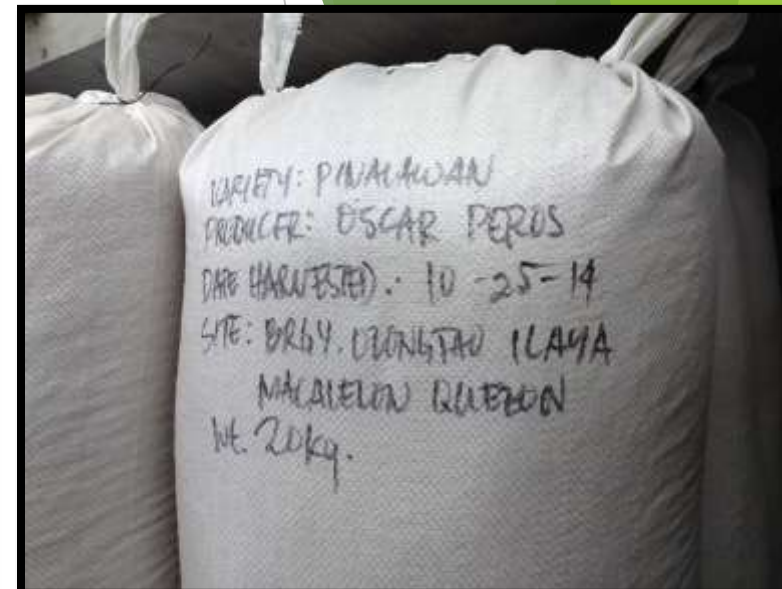 VARIETY: PINALAWAN
PRODUCER: OSCAR PEROS
DATE HARVESTED: 10-25-14
SITE: BRGY. OLONGTAO ILAYA
MACALELON QUEZON
Wt. 20kg.